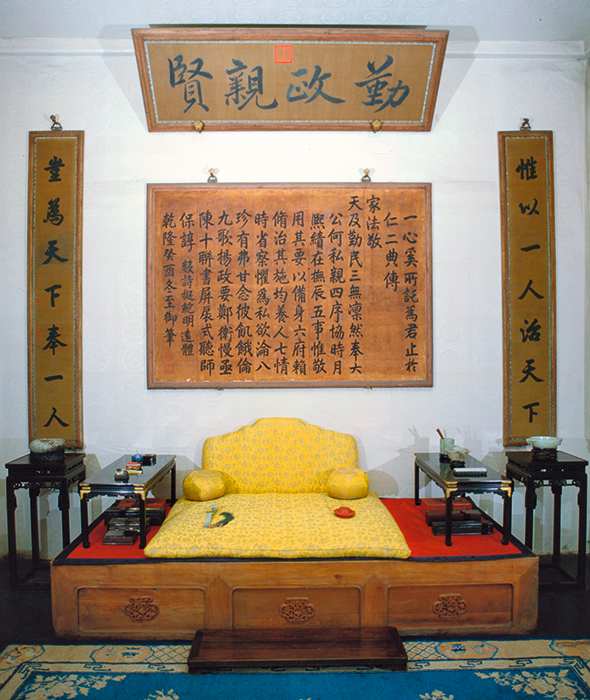 勤政親賢
惟以一人治天下
豈為天下奉一人
一心奚所託為君止於
仁二典傳
家法敬
天及勤民三無凛然奉大
公何私親四序協時月
熙績在撫辰五事惟敬
用其要以備身六府賴
脩治其施均養人七情
時省察懼為私欲淪八
珍有弗甘念彼飢餓倫
九歌揚政要鄭衛慢亟
陳十聯書屏扆式聽師
保諄 數詩擬鮑明遠體
乾隆癸酉冬至御筆